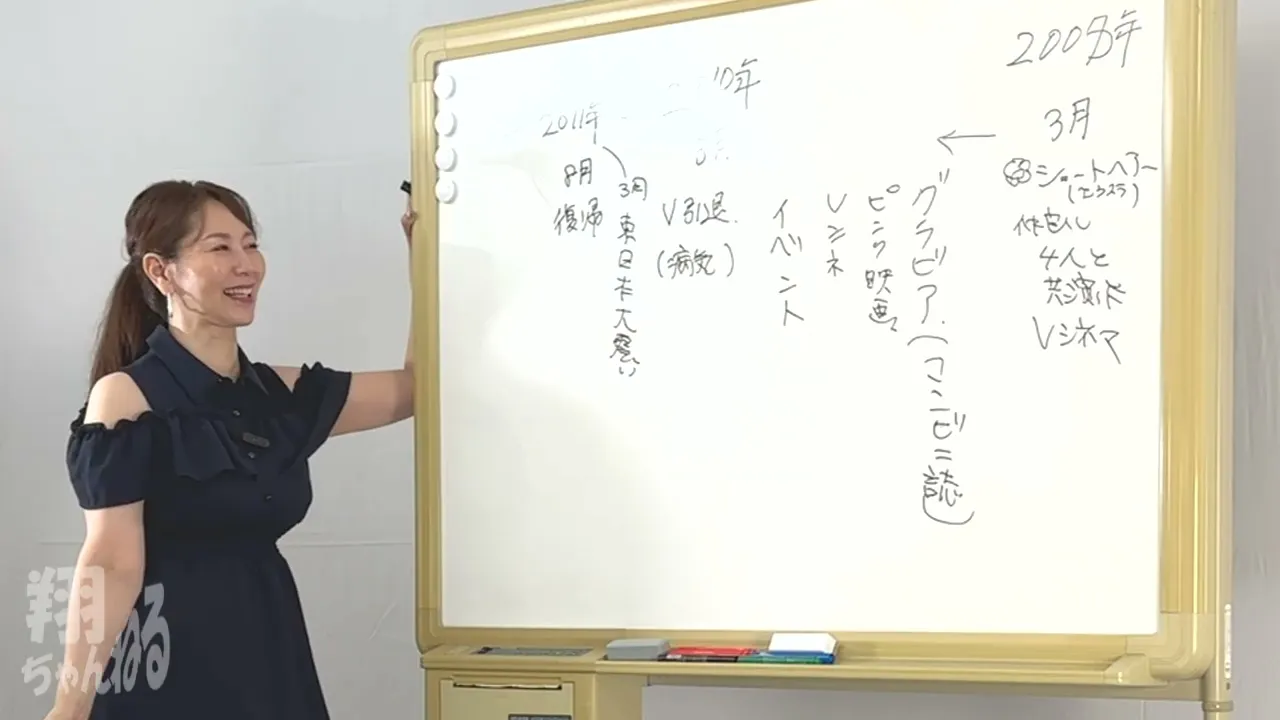 3月
ショートヘアー
4人と
共演
Vシネマ
←
グラビア.(コンビニ誌)
ピンク映画
Vシネ
イベント
'10年
V引退.
(病気)
2011年
3月
東日本大震い
8月
復帰
翔
ちゃんねる